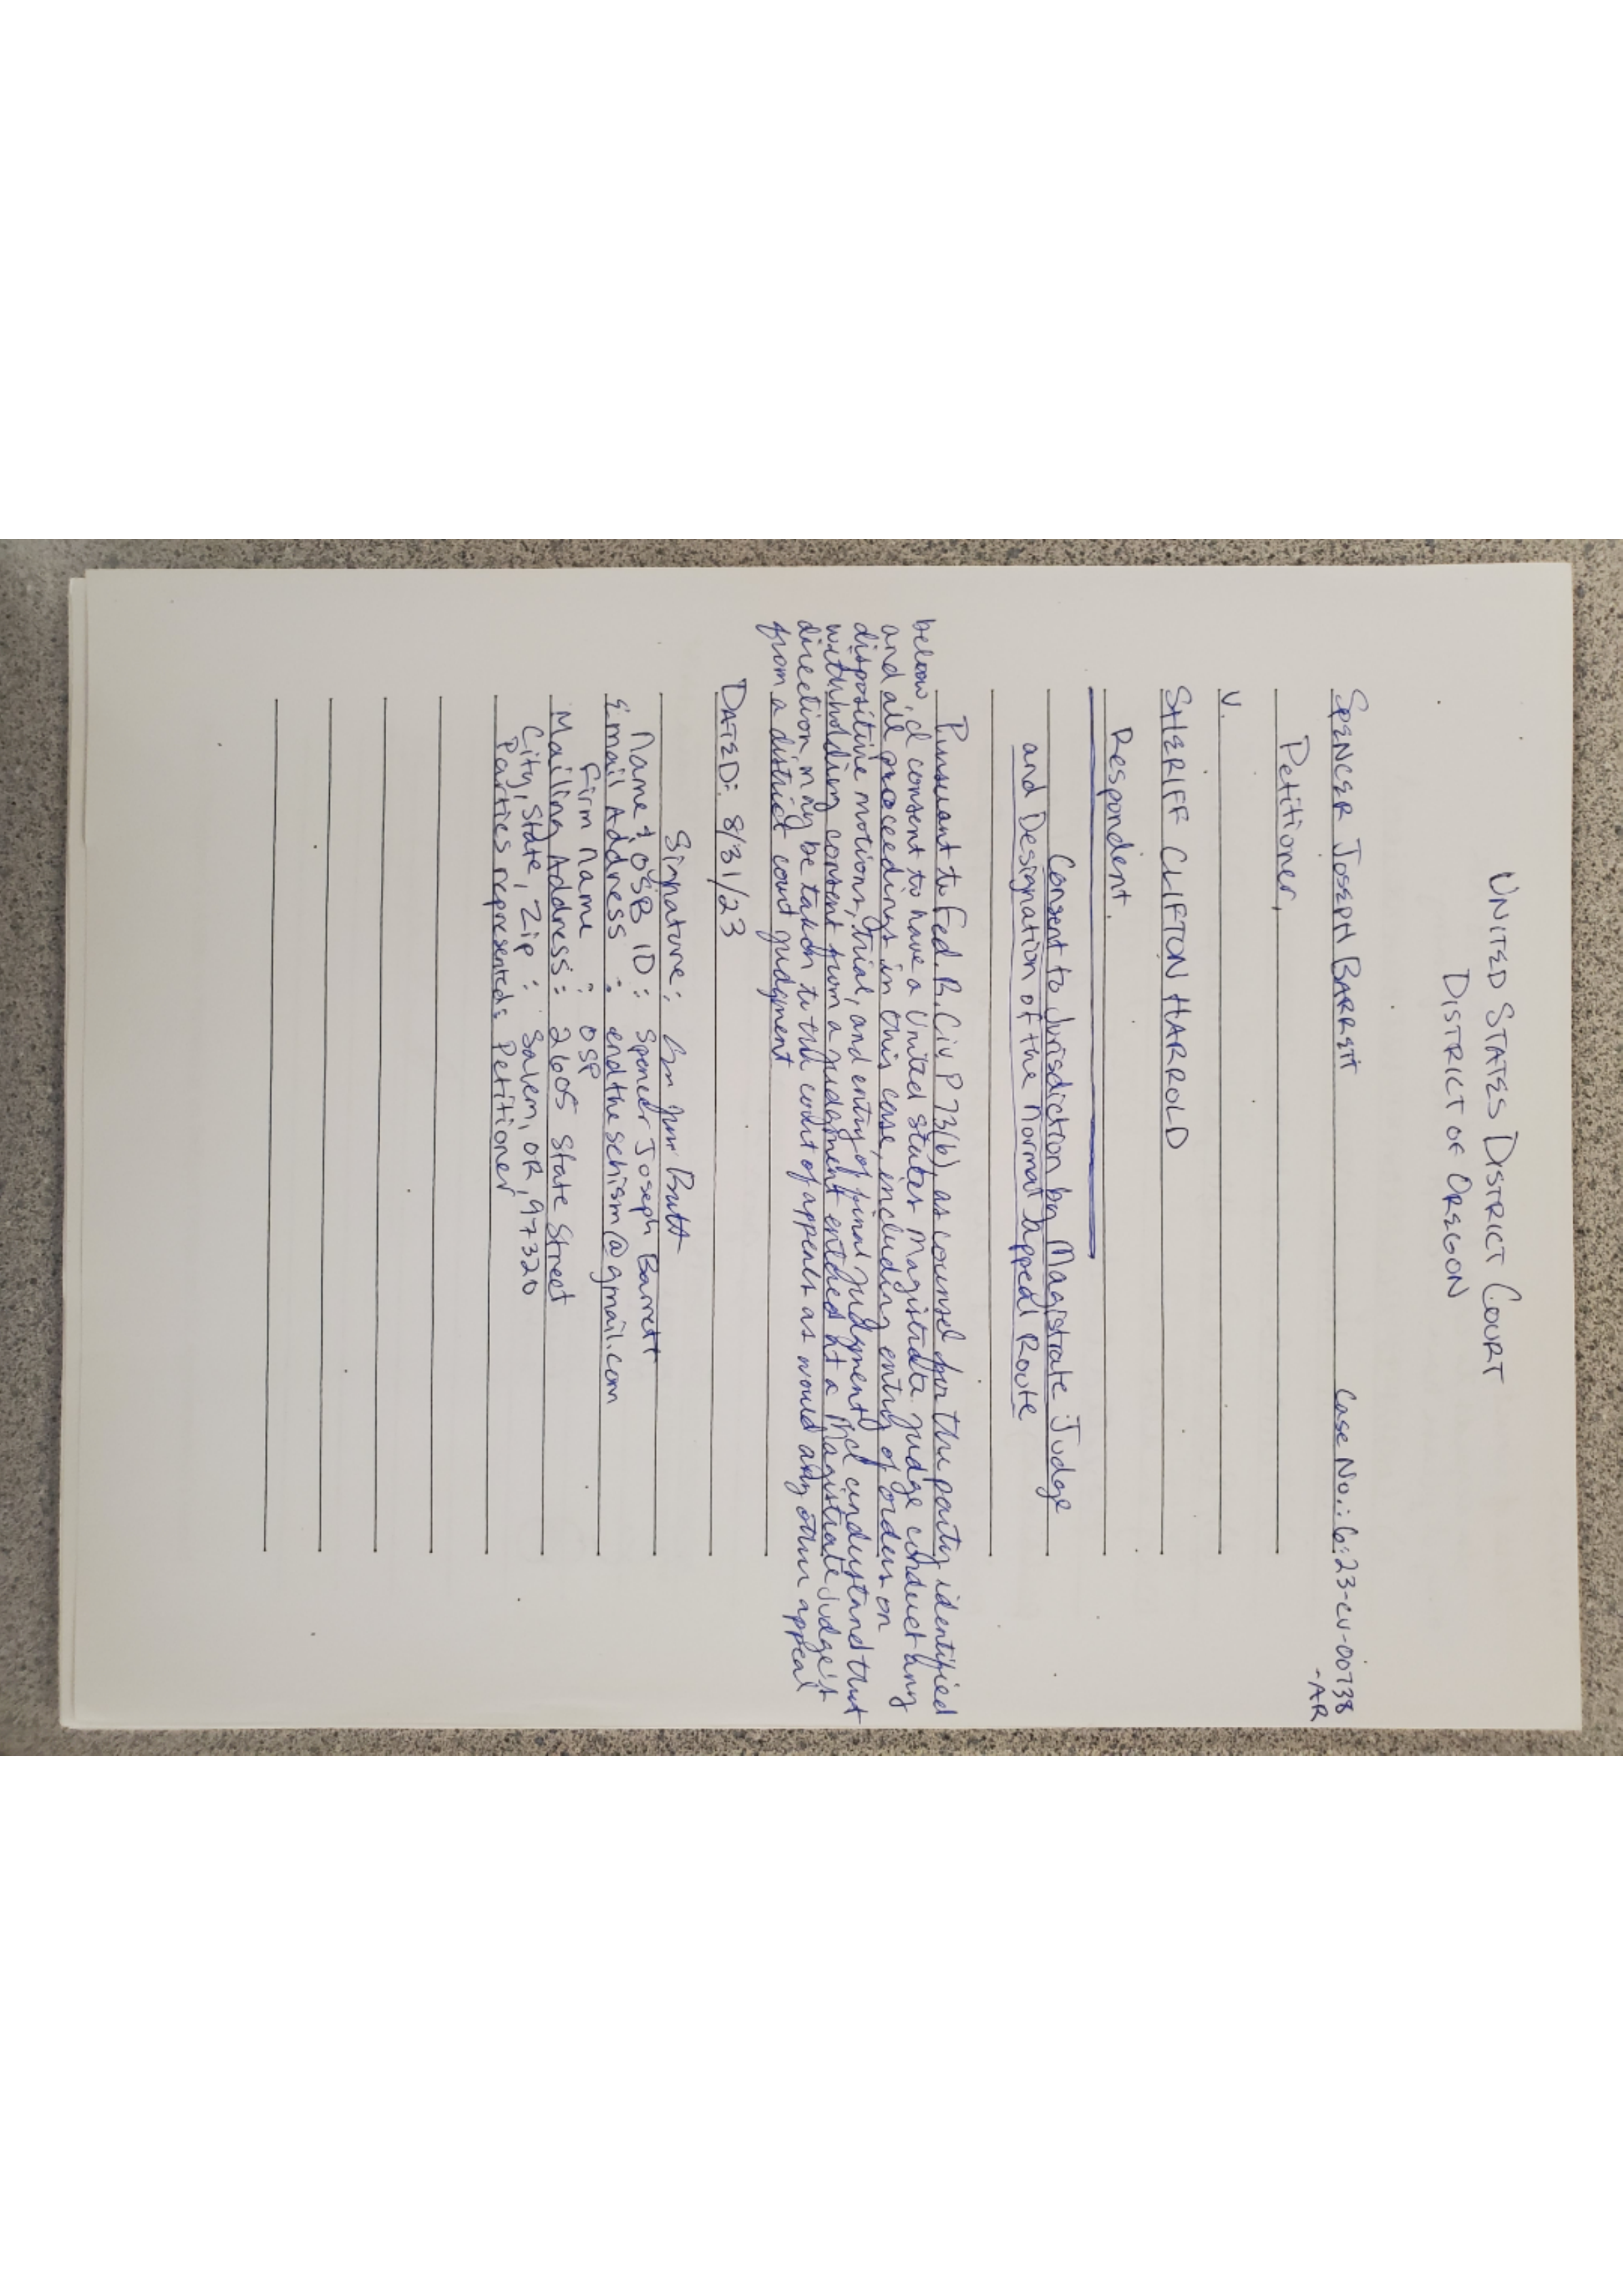 UNITED STATES DISTRICT COURT
DISTRICT OF OREGON
SPENCER JOSEPH BARRETT Case No.: 6:23-cv-00738
-AR
Petitioner,
V.
SHERIFF CLIFTON HARROLD
Respondent.
Consent to Jurisdiction by Magistrate Judge
and Designation of the Normal Appeal Route
Pursuant to Fed. R. Civ P 73(b), as counsel for the party identified
below, I consent to have a United States Magistrate Judge conduct any
and all proceedings in this case, including entry of orders on
dispositive motions, trial, and entry of final judgment, I understand that
withholding consent from a judgment entered by a Magistrate Judge's
direction, may be taken to the court of appeals as would any other appeal
from a district court judgment
DATED: 8/31/23
Signature:
Name & OSB ID: Spencer Joseph Barrett
Email Address: endtheschism@gmail.com
Firm name : OSP
Mailing Address: 2605 State Street
City, State, Zip : Salem, OR, 97320
Parties represented: Petitioner